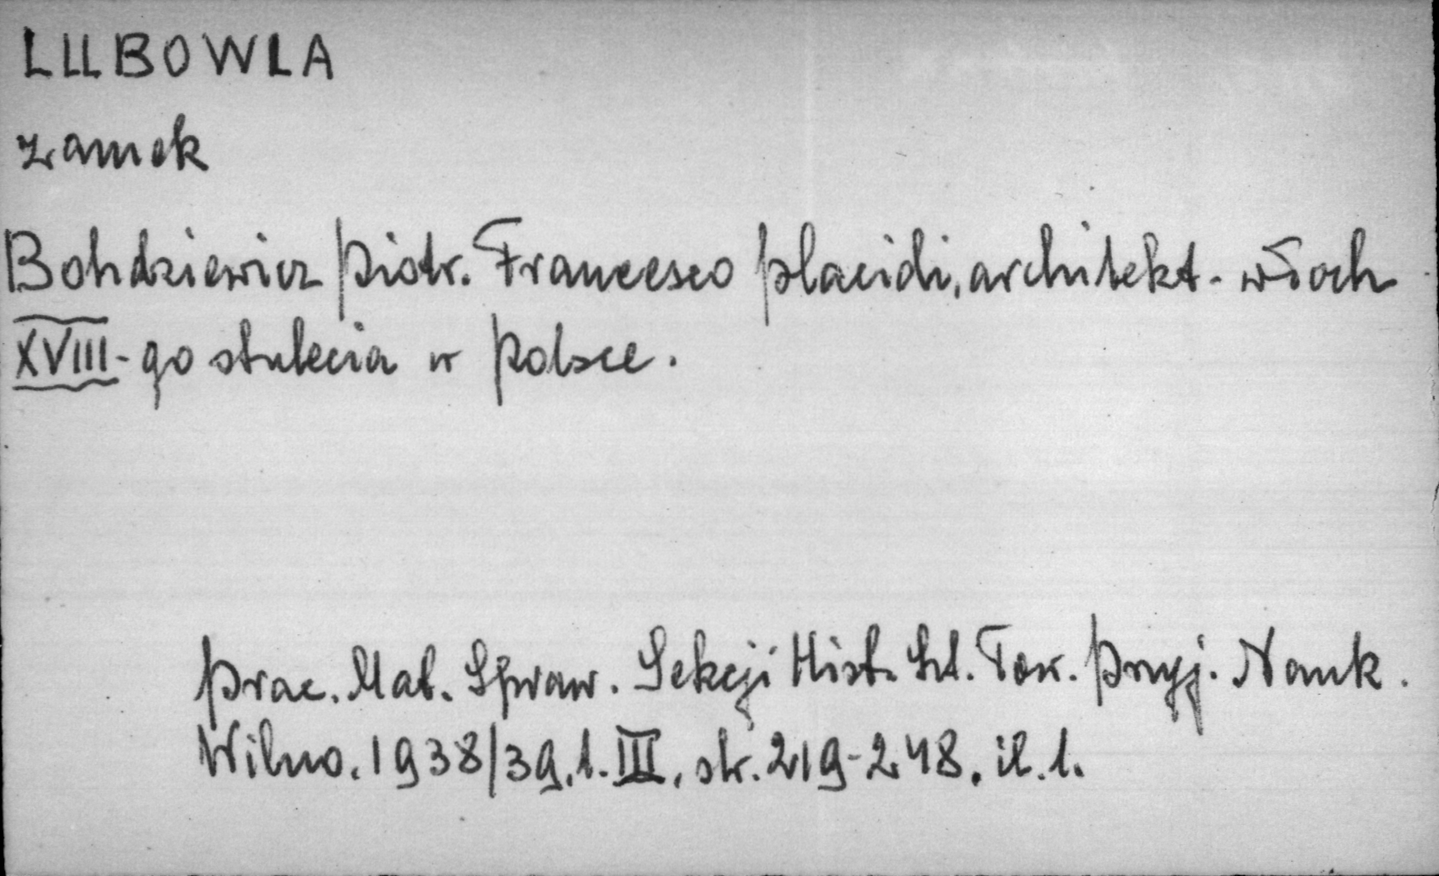 LUBOWLA
zamek
Bohdziewicz Piotr. Francesco Placidi, architekt-włoch
XVIII-go stulecia w Polsce.
Prac. Mat. Spraw. Sekcji Hist. Szt. Tow. Przyj. Nauk.
Wilno. 1938/39, t. III, str. 219-248, il. 1.